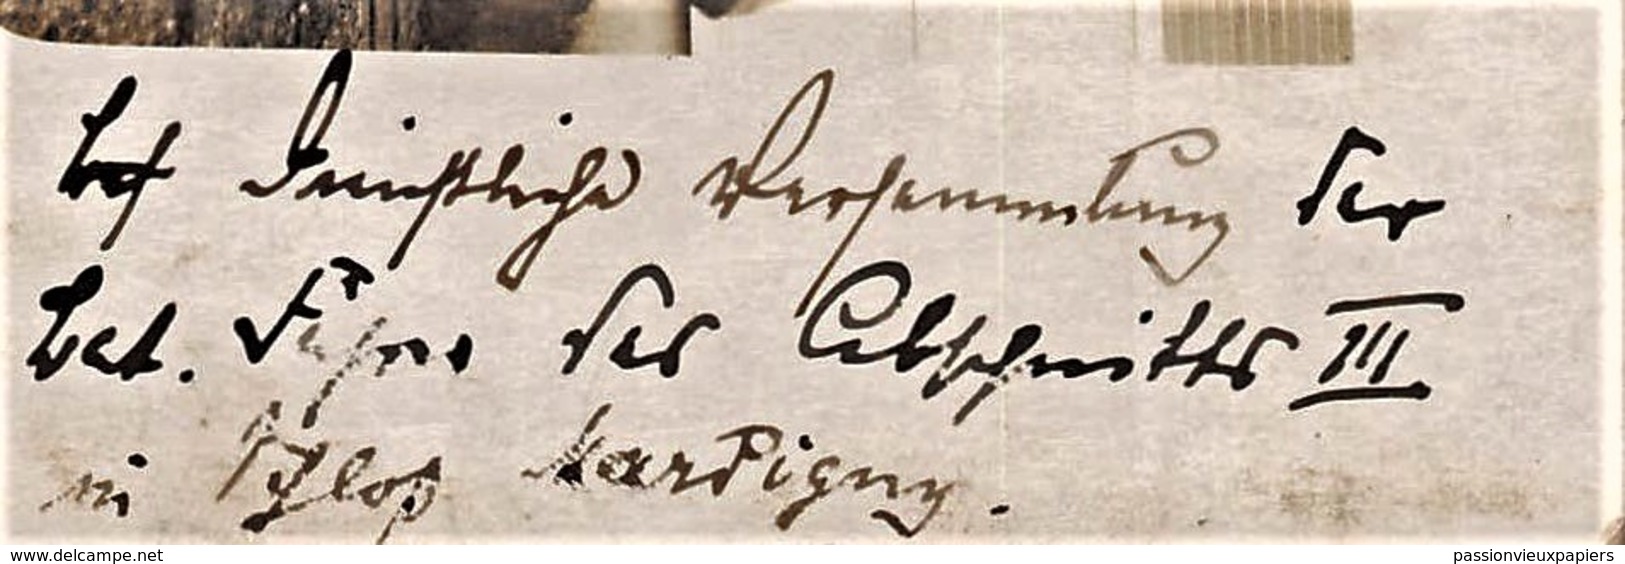 Dienstliche Versammlung der
Bat. Führer des Abschnitts III
in Schloß Mardigny.
www.delcampe.net
passionvieuxpapiers